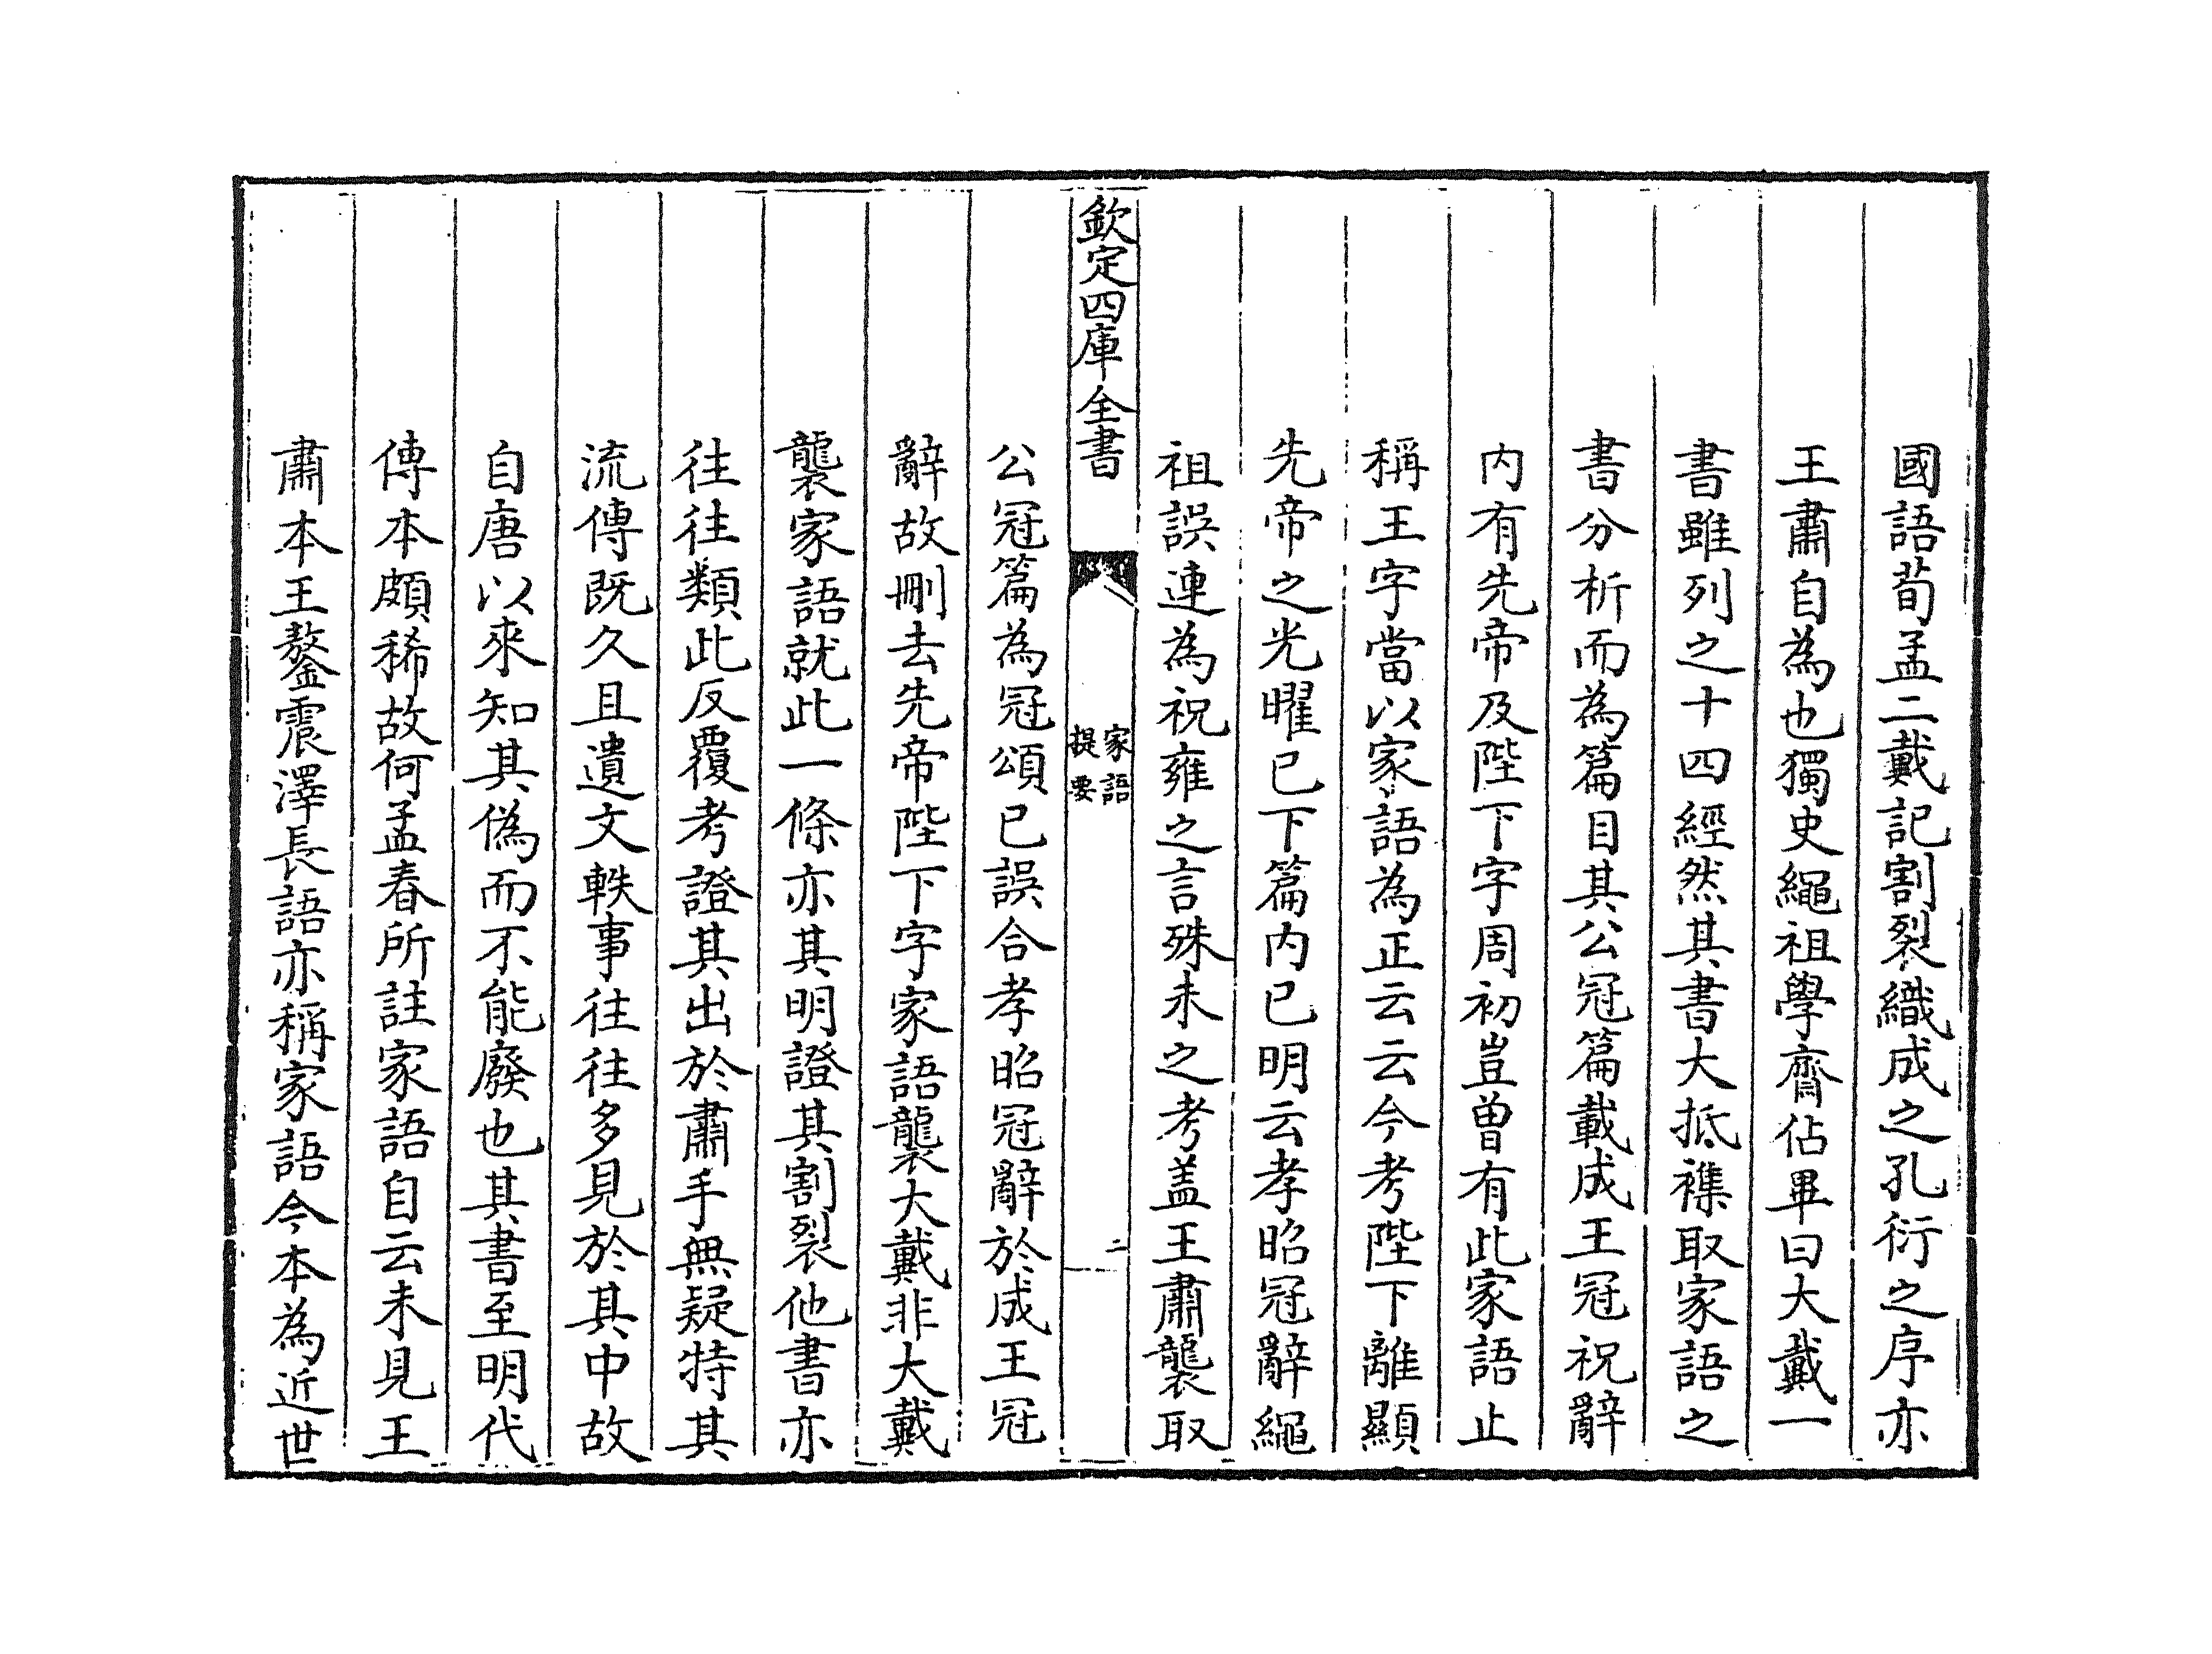 國語荀孟二戴記割裂織成之孔衍之序亦
王肅自為也獨史繩祖學齋佔畢曰大戴一
書雖列之十四經然其書大抵襍取家語之
書分析而為篇目其公冠篇載成王冠祝辭
内有先帝及陛下字周初豈曾有此家語止
稱王字當以家語為正云云今考陛下離顯
先帝之光曜已下篇内已明云孝昭冠辭繩
祖誤連為祝雍之言殊未之考盖王肅襲取
欽定四庫全書
家語
提要
二
公冠篇為冠頌已誤合孝昭冠辭於成王冠
辭故刪去先帝陛下字家語襲大戴非大戴
襲家語就此一條亦其明證其割裂他書亦
往往類此反覆考證其出於肅手無疑特其
流傳既久且遺文軼事往往多見於其中故
自唐以來知其偽而不能廢也其書至明代
傳本頗稀故何孟春所註家語自云未見王
肅本王鏊震澤長語亦稱家語今本為近世